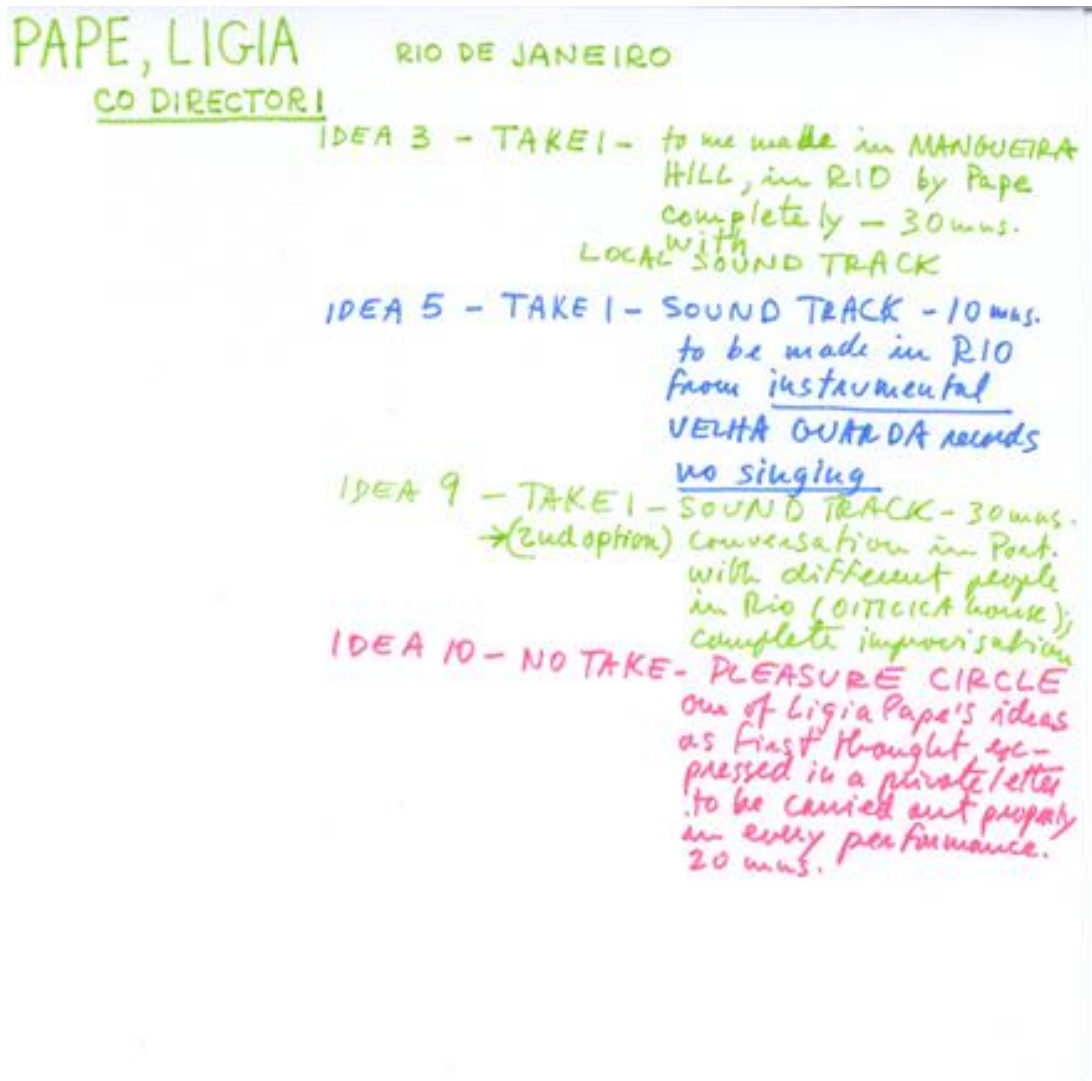 PAPE, LIGIA RIO DE JANEIRO
CO DIRECTOR 1
IDEA 3 - TAKE 1 - to me made in MANGUEIRA
HILL, in RIO by Pape
completely - 30 mns.
with
LOCAL SOUND TRACK
IDEA 5 - TAKE 1 - SOUND TRACK - 10 mns.
to be made in RIO
from instrumental
VELHA GUARDA records
no singing
IDEA 9 - TAKE 1 - SOUND TRACK - 30 mns.
→(2nd option) conversation in Port.
with different people
in Rio (OITICICA house);
complete improvisation
IDEA 10 - NO TAKE - PLEASURE CIRCLE
one of Ligia Pape's ideas
as first thought, ex-
pressed in a private letter
to be carried out properly
in every performance.
20 mns.